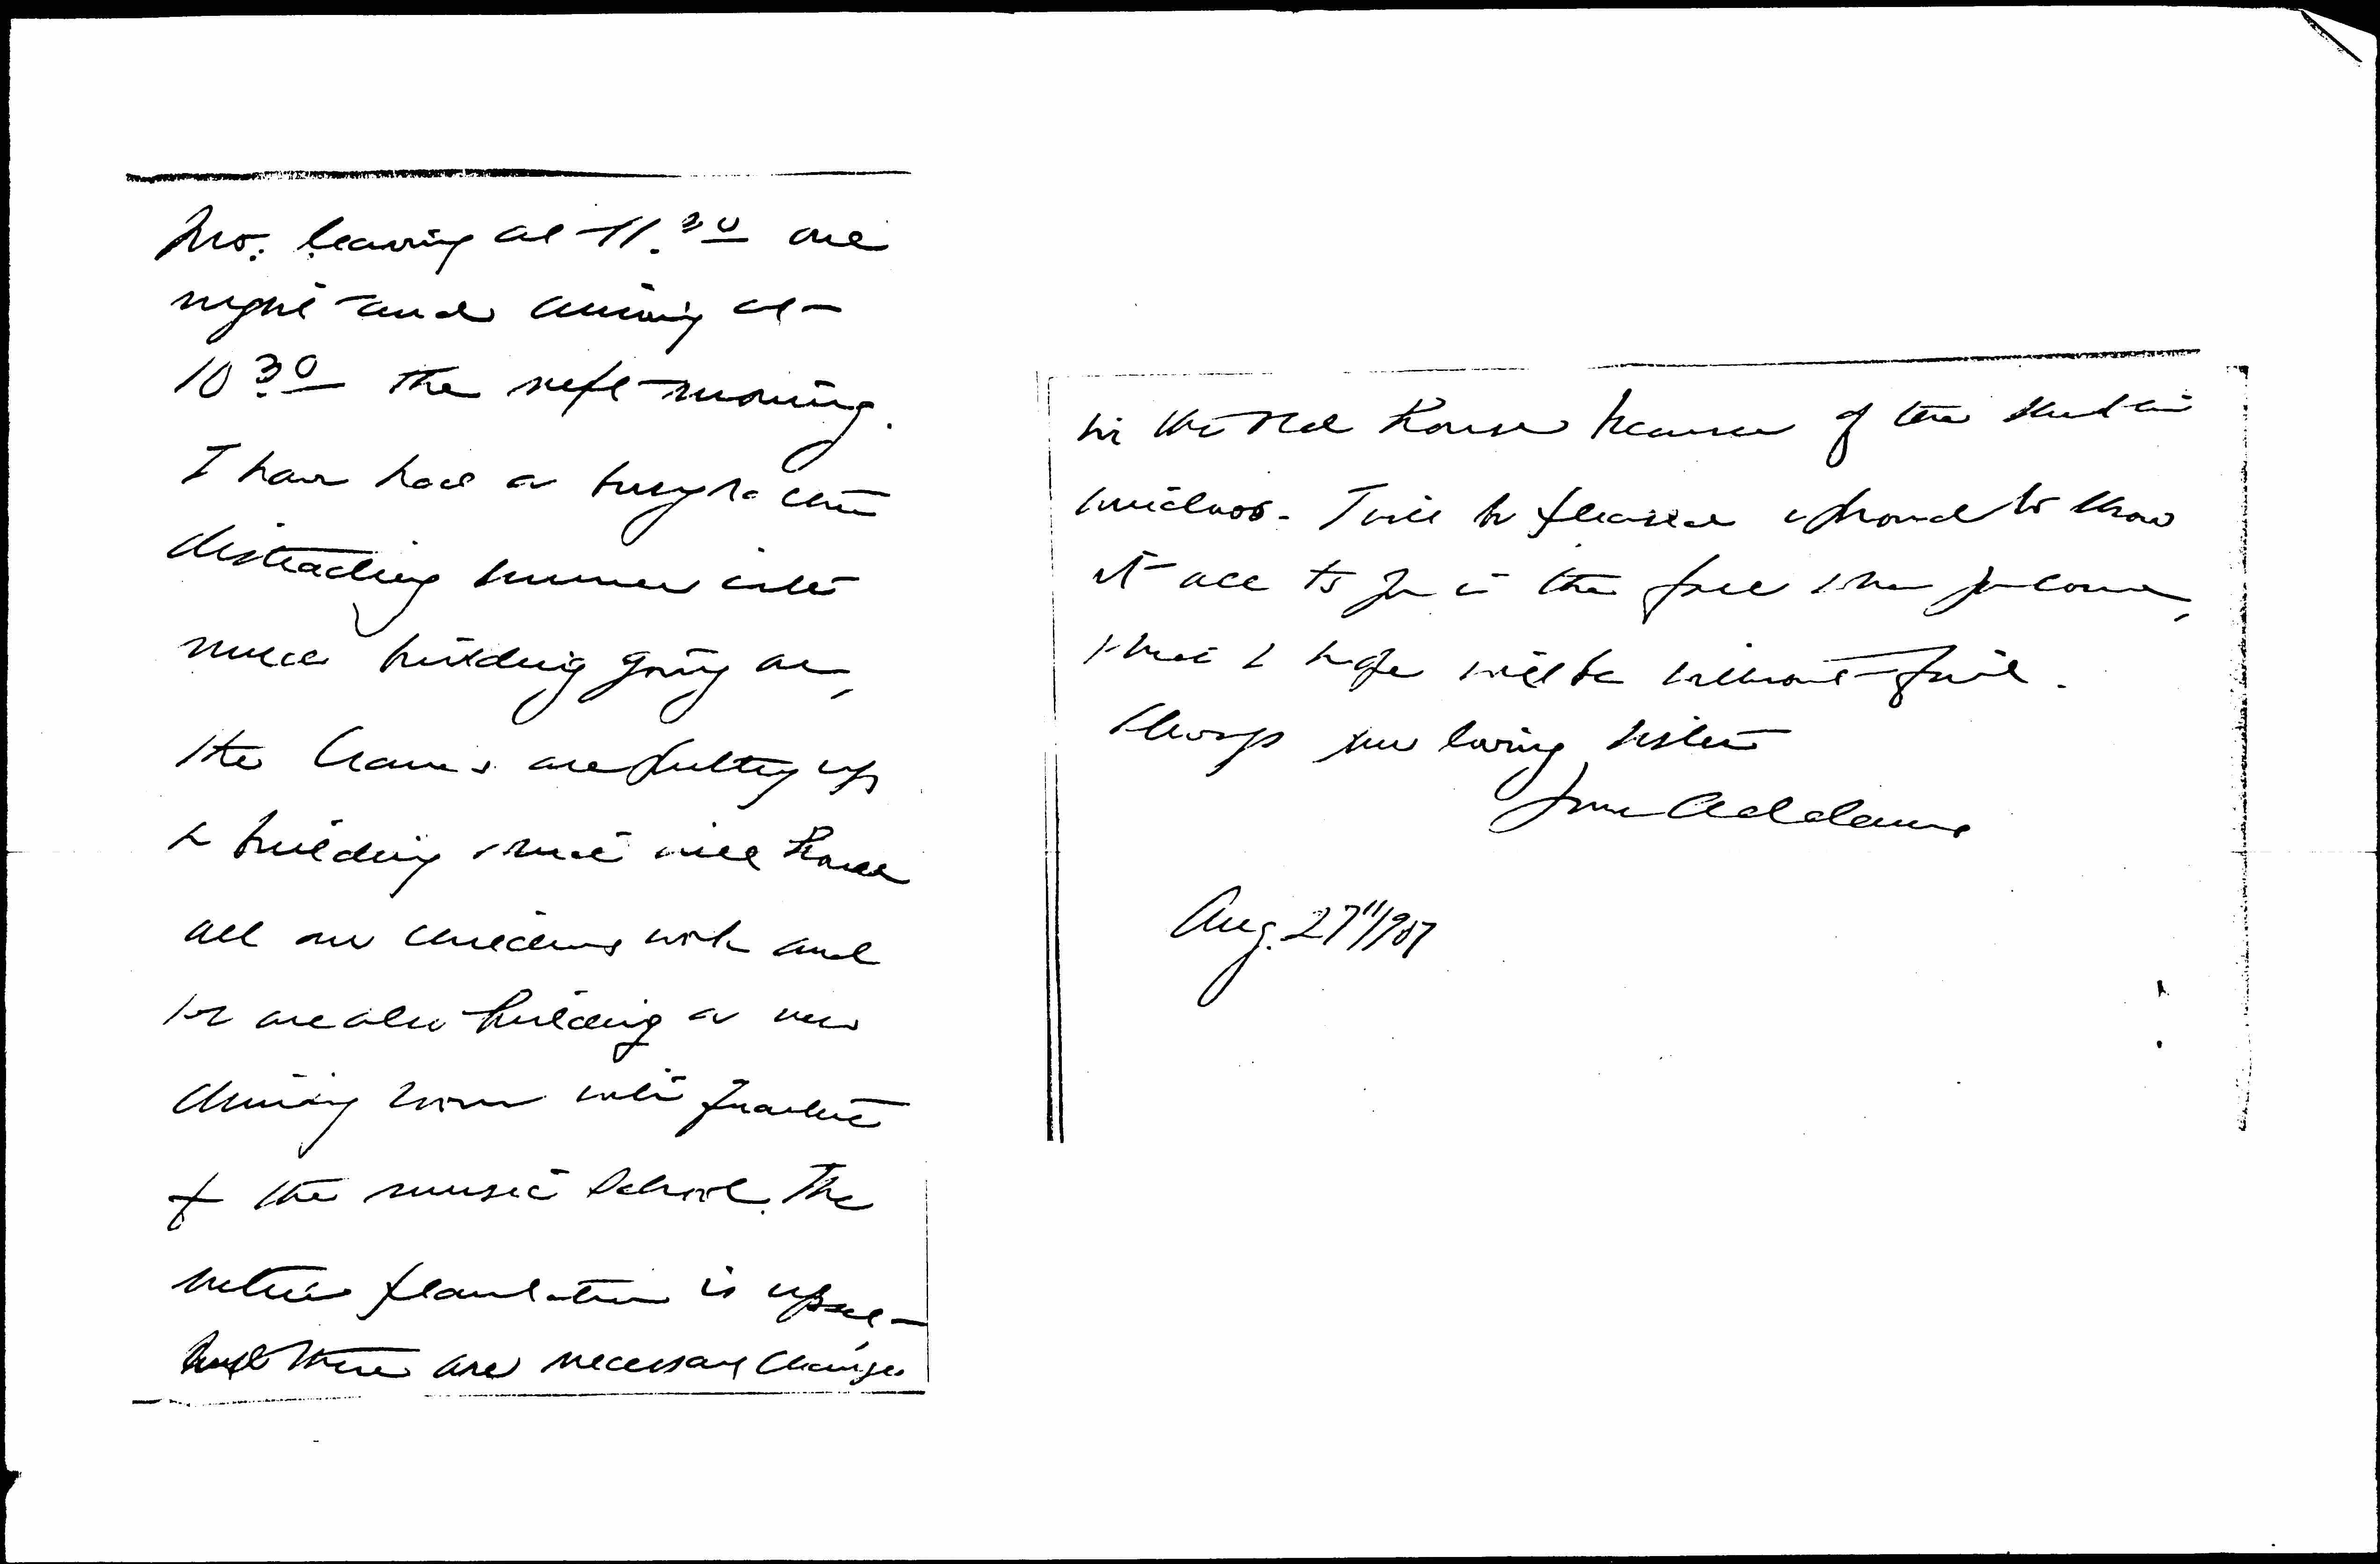 Mo. leaving at 11.30 one
night and arriving at
10.30 the next morning.
I have had a busy rather
distracting summer with
much building going on,
the Cranes are putting up
a building which will house
all our childrens work and
we are also building a new
dining room with
of the music school. The
entire plantation is upset
but there are necessary changes
in the old house because of the
windows. I will be pleased & proud to show
it all to you in the fall when you come,
which I hope will be without fail.
Always your loving sister
Jane Addams
Aug. 27" 1907